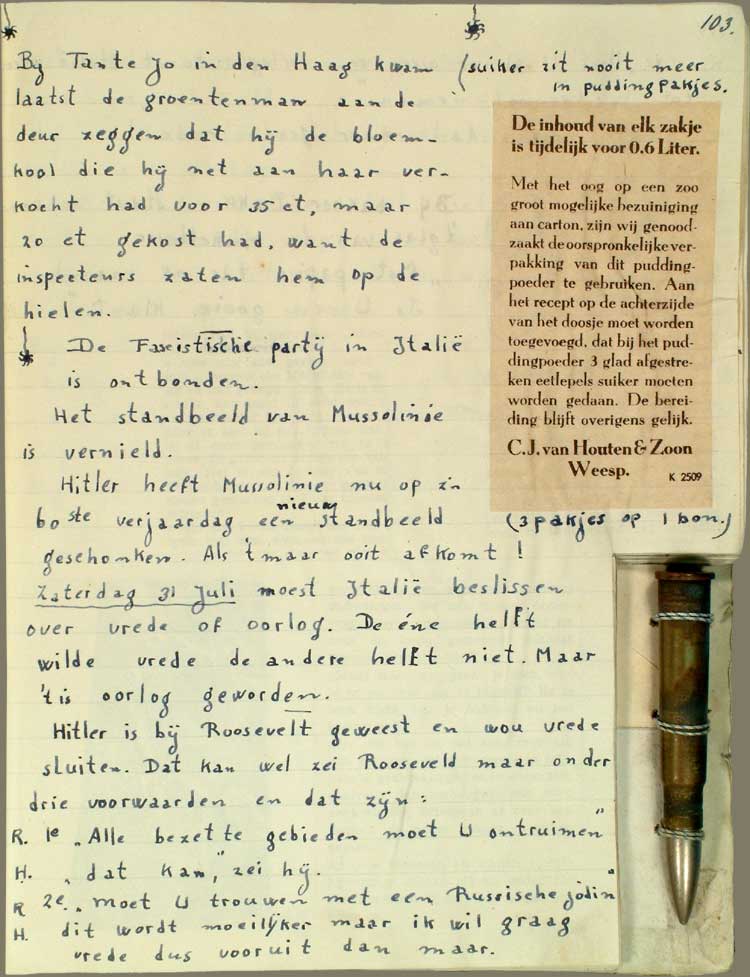 103.
By Tante Jo in den Haag kwam
laatst de groentenman aan de
deur zeggen dat hij de bloem-
kool die hij net aan haar ver-
kocht had voor 35 ct, maar
20 ct gekost had, want de
inspecteurs zaten hem op de
hielen.
(suiker zit nooit meer
in puddingpakjes.
De inhoud van elk zakje
is tijdelijk voor 0.6 Liter.
Met het oog op een zoo
groot mogelijke bezuiniging
aan carton, zijn wij genood-
zaakt de oorspronkelijke ver-
pakking van dit pudding-
poeder te gebruiken. Aan
het recept op de achterzijde
van het doosje moet worden
toegevoegd, dat bij het pud-
dingpoeder 3 glad afgestre-
ken eetlepels suiker moeten
worden gedaan. De berei-
ding blijft overigens gelijk.
C.J. van Houten & Zoon
Weesp.
K 2509
(3 pakjes op 1 bon.)
De Fascistische partij in Italië
is ontbonden.
Het standbeeld van Mussolinie
is vernield.
Hitler heeft Mussolinie nu op z'n
60ste verjaardag een nieuw standbeeld
geschonken. Als 't maar ooit afkomt!
Zaterdag 31 Juli moest Italië beslissen
over vrede of oorlog. De éne helft
wilde vrede de andere helft niet. Maar
't is oorlog geworden.
Hitler is bij Roosevelt geweest en wou vrede
sluiten. Dat kan wel zei Rooseveld maar onder
drie voorwaarden en dat zijn:
R. 1e „Alle bezette gebieden moet U ontruimen"
H. „dat kan," zei hij.
R 2e. „moet U trouwen met een Russische jodin
H. dit wordt moeilijker maar ik wil graag
vrede dus vooruit dan maar.